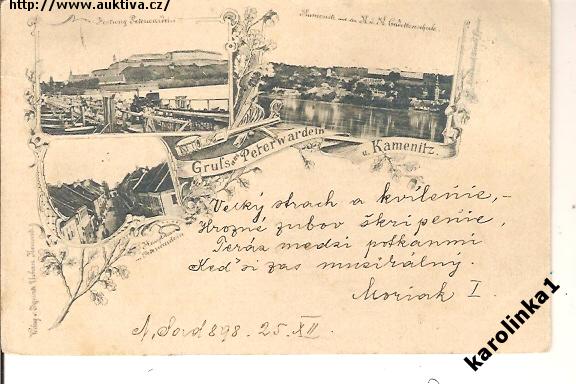 http://www.auktiva.cz/
Festung Peterwardein
Kamenitz mit der K. u. K. Cadettenschule.
Gruss aus Peterwardein
u. Kamenitz.
Peterwardein
Veľký strach a kvílenie, –
Hrozné zubov škrípenie,
Teráz medzi potkanmi
Keď si zas muzirálný.
Moriak I.
N. Sad 898. 25. XII
karolinka1